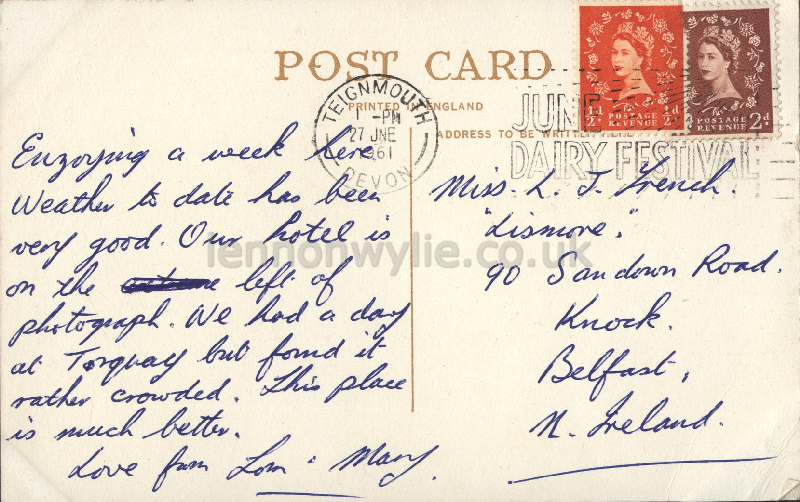 POST CARD
PRINTED IN ENGLAND
ADDRESS TO BE WRITTEN
TEIGNMOUTH
1 -PM
27 JNE
1961
DEVON
JUNE
DAIRY FESTIVAL
½d ½d
POSTAGE
REVENUE
POSTAGE
REVENUE 2d
Enjoying a week here
Weather to date has been
very good. Our hotel is
on the left of
photograph. We had a day
at Torquay but found it
rather crowded. This place
is much better.
Love from Tom & Mary.
Miss L. J. French.
"Lismore".
90 Sandown Road.
Knock.
Belfast,
N. Ireland.
lennonwylie.co.uk